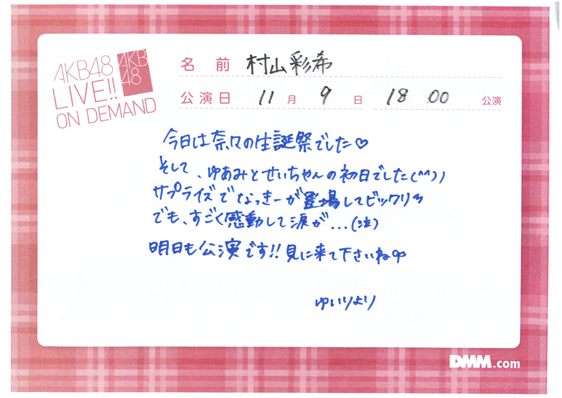 AKB48
LIVE!!
ON DEMAND
AKB
48
名前 村山彩希
公演日 11月 9日 18 00 公演
今日は奈々の生誕祭でした♡
そして、ゆあみとせいちゃんの初日でした(^^))
サプライズでなっきーが登場してビックリ
でも、すごく感動して涙が...(泣)
明日も公演です!!見に来て下さいね
ゆいりより
DMM.com